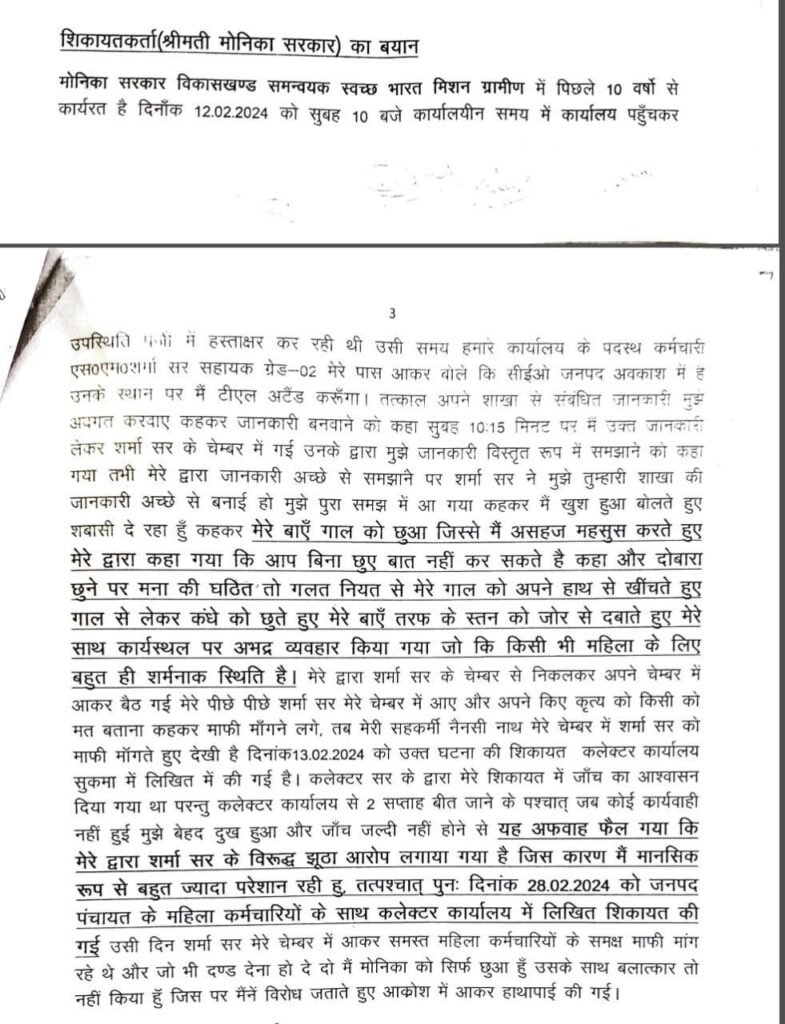 शिकायतकर्ता(श्रीमती मोनिका सरकार) का बयान
मोनिका सरकार विकासखण्ड समन्वयक स्वच्छ भारत मिशन ग्रामीण में पिछले 10 वर्षो से
कार्यरत है दिनाँक 12.02.2024 को सुबह 10 बजे कार्यालयीन समय में कार्यालय पहुँचकर
3
उपस्थिति पंजी में हस्ताक्षर कर रही थी उसी समय हमारे कार्यालय के पदस्थ कर्मचारी
एस0एम0शर्मा सर सहायक ग्रेड-02 मेरे पास आकर बोले कि सीईओ जनपद अवकाश में है
उनके स्थान पर मैं टीएल अटैंड करूँगा। तत्काल अपने शाखा से संबंधित जानकारी मुझे
अवगत करवाए कहकर जानकारी बनवाने को कहा सुबह 10:15 मिनट पर मैं उक्त जानकारी
लेकर शर्मा सर के चेम्बर में गई उनके द्वारा मुझे जानकारी विस्तृत रूप में समझाने को कहा
गया तभी मेरे द्वारा जानकारी अच्छे से समझाने पर शर्मा सर ने मुझे तुम्हारी शाखा की
जानकारी अच्छे से बनाई हो मुझे पुरा समझ में आ गया कहकर मैं खुश हुआ बोलते हुए
शबासी दे रहा हुँ कहकर मेरे बाएँ गाल को छुआ जिस्से मैं असहज महसुस करते हुए
मेरे द्वारा कहा गया कि आप बिना छुए बात नहीं कर सकते है कहा और दोबारा
छुने पर मना की घठित तो गलत नियत से मेरे गाल को अपने हाथ से खींचते हुए
गाल से लेकर कंधे को छुते हुए मेरे बाएँ तरफ के स्तन को जोर से दबाते हुए मेरे
साथ कार्यस्थल पर अभद्र व्यवहार किया गया जो कि किसी भी महिला के लिए
बहुत ही शर्मनाक स्थिति है। मेरे द्वारा शर्मा सर के चेम्बर से निकलकर अपने चेम्बर में
आकर बैठ गई मेरे पीछे पीछे शर्मा सर मेरे चेम्बर में आए और अपने किए कृत्य को किसी को
मत बताना कहकर माफी माँगने लगे, तब मेरी सहकर्मी नैनसी नाथ मेरे चेम्बर में शर्मा सर को
माफी मॉगते हुए देखी है दिनांक13.02.2024 को उक्त घटना की शिकायत कलेक्टर कार्यालय
सुकमा में लिखित में की गई है। कलेक्टर सर के द्वारा मेरे शिकायत में जाँच का आश्वासन
दिया गया था परन्तु कलेक्टर कार्यालय से 2 सप्ताह बीत जाने के पश्चात् जब कोई कार्यवाही
नहीं हुई मुझे बेहद दुख हुआ और जाँच जल्दी नहीं होने से यह अफवाह फैल गया कि
मेरे द्वारा शर्मा सर के विरूद्ध झूठा आरोप लगाया गया है जिस कारण मैं मानसिक
रूप से बहुत ज्यादा परेशान रही हु, तत्पश्चात् पुनः दिनांक 28.02.2024 को जनपद
पंचायत के महिला कर्मचारियों के साथ कलेक्टर कार्यालय में लिखित शिकायत की
गई उसी दिन शर्मा सर मेरे चेम्बर में आकर समस्त महिला कर्मचारियों के समक्ष माफी मांग
रहे थे और जो भी दण्ड देना हो दे दो मैं मोनिका को सिर्फ छुआ हुँ उसके साथ बलात्कार तो
नहीं किया हुँ जिस पर मैंनें विरोध जताते हुए आक्रोश में आकर हाथापाई की गई।